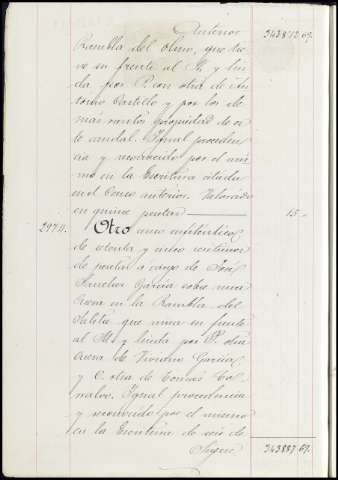 Anterior 343872 69.
Rambla del Olmo, que tie
ne su frente al N. y lin
da por P. con otra de An
tonio Castillo y por los de
mas vientos propiedad de es
te caudal. Igual proceden
cia y reconocido por el mis
mo en la Escritura citada
en el Censo anterior. Valorado
en quince pesetas 15 -
297 Otro censo enfiteutico
de ochenta y cinco centimos
de peseta a cargo de José
García sobre una
Cueva en la Rambla del
que mira su frente
al M. y linda por P. otra
Cueva de García
y L. otra de Tomás
Igual procedencia
y reconocido por el mismo
en la Escritura de seis de
Sigue 343887 69.